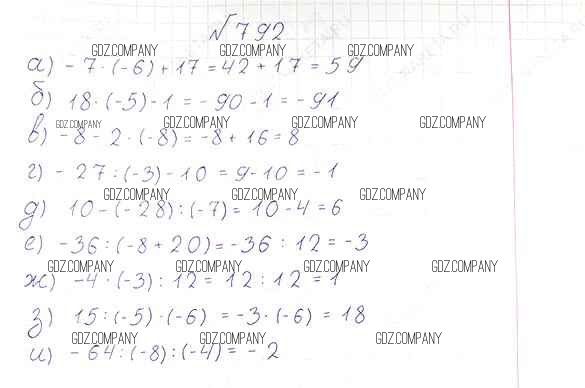 № 792
GDZ.COMPANY GDZ.COMPANY GDZ.COMPANY
а) - 7 · (-6) + 17 = 42 + 17 = 59
б) 18 · (-5) - 1 = - 90 - 1 = - 91
GDZ.COMPANY GDZ.COMPANY GDZ.COMPANY GDZ.COMPANY
в) - 8 - 2 · (-8) = -8 + 16 = 8
г) - 27 : (-3) - 10 = 9 - 10 = - 1
GDZ.COMPANY GDZ.COMPANY GDZ.COMPANY
д) 10 - (- 28) : (-7) = 10 - 4 = 6
е) -36 : (-8 + 20) = -36 : 12 = -3
GDZ.COMPANY GDZ.COMPANY GDZ.COMPANY GDZ.COMPANY
ж) -4 · (-3) : 12 = 12 : 12 = 1
з) 15 : (-5) · (-6) = -3 · (-6) = 18
GDZ.COMPANY GDZ.COMPANY GDZ.COMPANY
и) - 64 : (-8) : (-4) = - 2